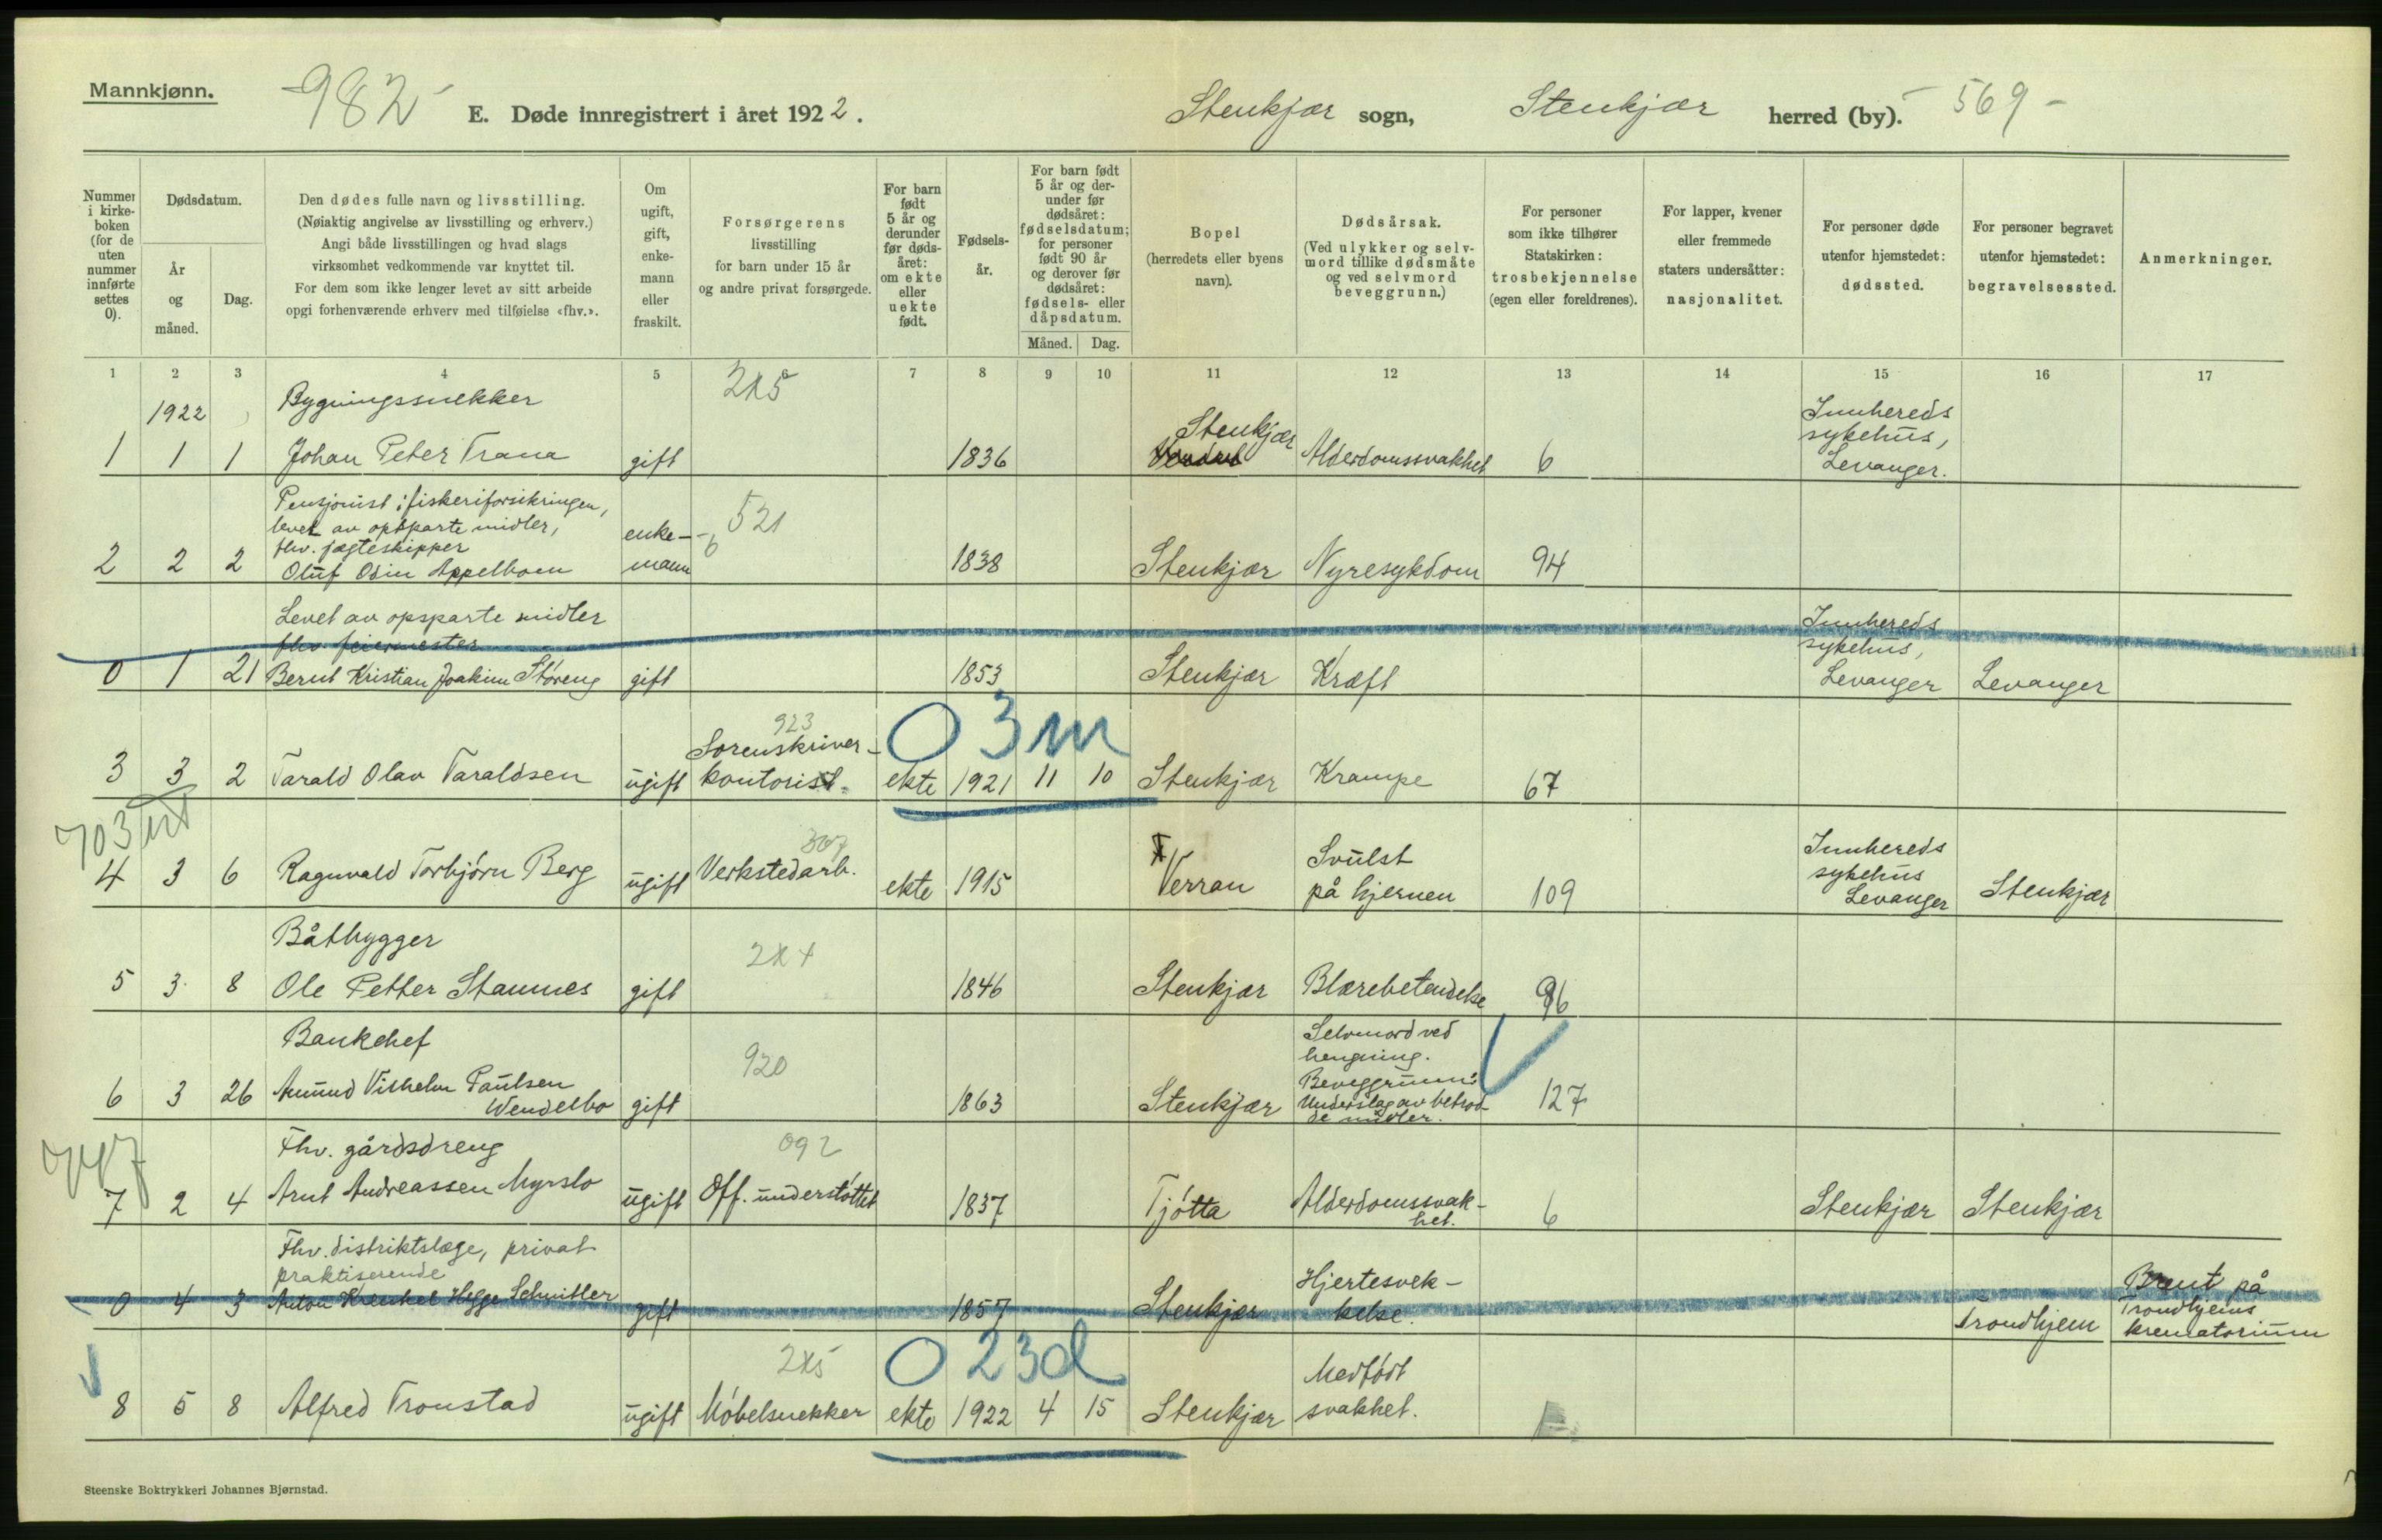 Mannkjønn.
982
E. Døde innregistrert i året 1922.
Stenkjær sogn, Stenkjær herred (by). - 569 -
Nummer i kirke- boken (for de uten nummer innførte settes 0).
Dødsdatum.
År og måned.
Dag.
Den dødes fulle navn og livsstilling.
(Nøiaktig angivelse av livsstilling og erhverv.)
Angi både livsstillingen og hvad slags
virksomhet vedkommende var knyttet til.
For dem som ikke lenger levet av sitt arbeide
opgi forhenværende erhverv med tilføielse «fhv.».
Om ugift, gift, enke- mann eller fraskilt.
Forsørgerens
livsstilling
for barn under 15 år
og andre privat forsørgede.
For barn født 5 år og derunder før døds- året: om ekte eller uekte født.
Fødsels- år.
For barn født 5 år og der- under før dødsåret: fødselsdatum; for personer født 90 år og derover før dødsåret: fødsels- eller dåpsdatum.
Måned. Dag.
Bopel
(herredets eller byens
navn).
Dødsårsak.
(Ved ulykker og selv-
mord tillike dødsmåte
og ved selvmord
beveggrunn.)
For personer
som ikke tilhører
Statskirken:
trosbekjennelse
(egen eller foreldrenes).
For lapper, kvener
eller fremmede
staters undersåtter:
nasjonalitet.
For personer døde
utenfor hjemstedet:
dødssted.
For personer begravet
utenfor hjemstedet:
begravelsessted.
Anmerkninger.
1 2 3 4 5 6 7 8 9 10 11 12 13 14 15 16 17
1922 Bygningssnekker 2x5 Stenkjær Innhereds
sykehus,
1 1 1 Johan Peter Trana gift 1836 Alderdomssvakhet 6 Levanger.
Pensjonist i fiskeriforsikringen,
levet av opsparte midler, 521
fhv. jægteskipper enke-
2 2 2 Oluf Odin Appelboen mann 6 1838 Stenkjær Nyresykdom 94
Levet av opsparte midler Innhereds
fhv. feiermester sykehus,
0 1 21 Bernt Kristian Joakim Støreng gift 1853 Stenkjær Kræft Levanger Levanger
923 0 3m
Sorenskriver-
3 3 2 Tarald Olav Taraldsen ugift kontorist. ekte 1921 11 10 Stenkjær Krampe 67
703
307 Svulst Innhereds
sykehus
4 3 6 Ragnvald Torbjørn Berg ugift Verkstedarb. ekte 1915 Verran på hjernen 109 Levanger Stenkjær
Båtbygger 2x4
5 3 8 Ole Petter Stamnes gift 1846 Stenkjær Blærebetendelse 96
Bankchef 920 Selvmord ved
hengning.
Beveggrunn:
6 3 26 Amund Vilhelm Paulsen Wendelbo gift 1863 Stenkjær Underslag av betrod- 127
de midler.
747
Fhv. gårdsdreng 092
7 2 4 Arnt Andreassen Myrslo ugift Off. understøttet 1837 Tjøtta Alderdomssvak- 6 Stenkjær Stenkjær
het.
Fhv. distriktslæge, privat
praktiserende Hjertesvek- Brent på
0 4 3 Anton Krenkel Hegge Schnitler gift 1857 Stenkjær kelse. Trondhjem Trondhjems
krematorium
2x5 0 23d Medfødt
8 5 8 Alfred Tronstad ugift Møbelsnekker ekte 1922 4 15 Stenkjær svakhet.
Steenske Boktrykkeri Johannes Bjørnstad.